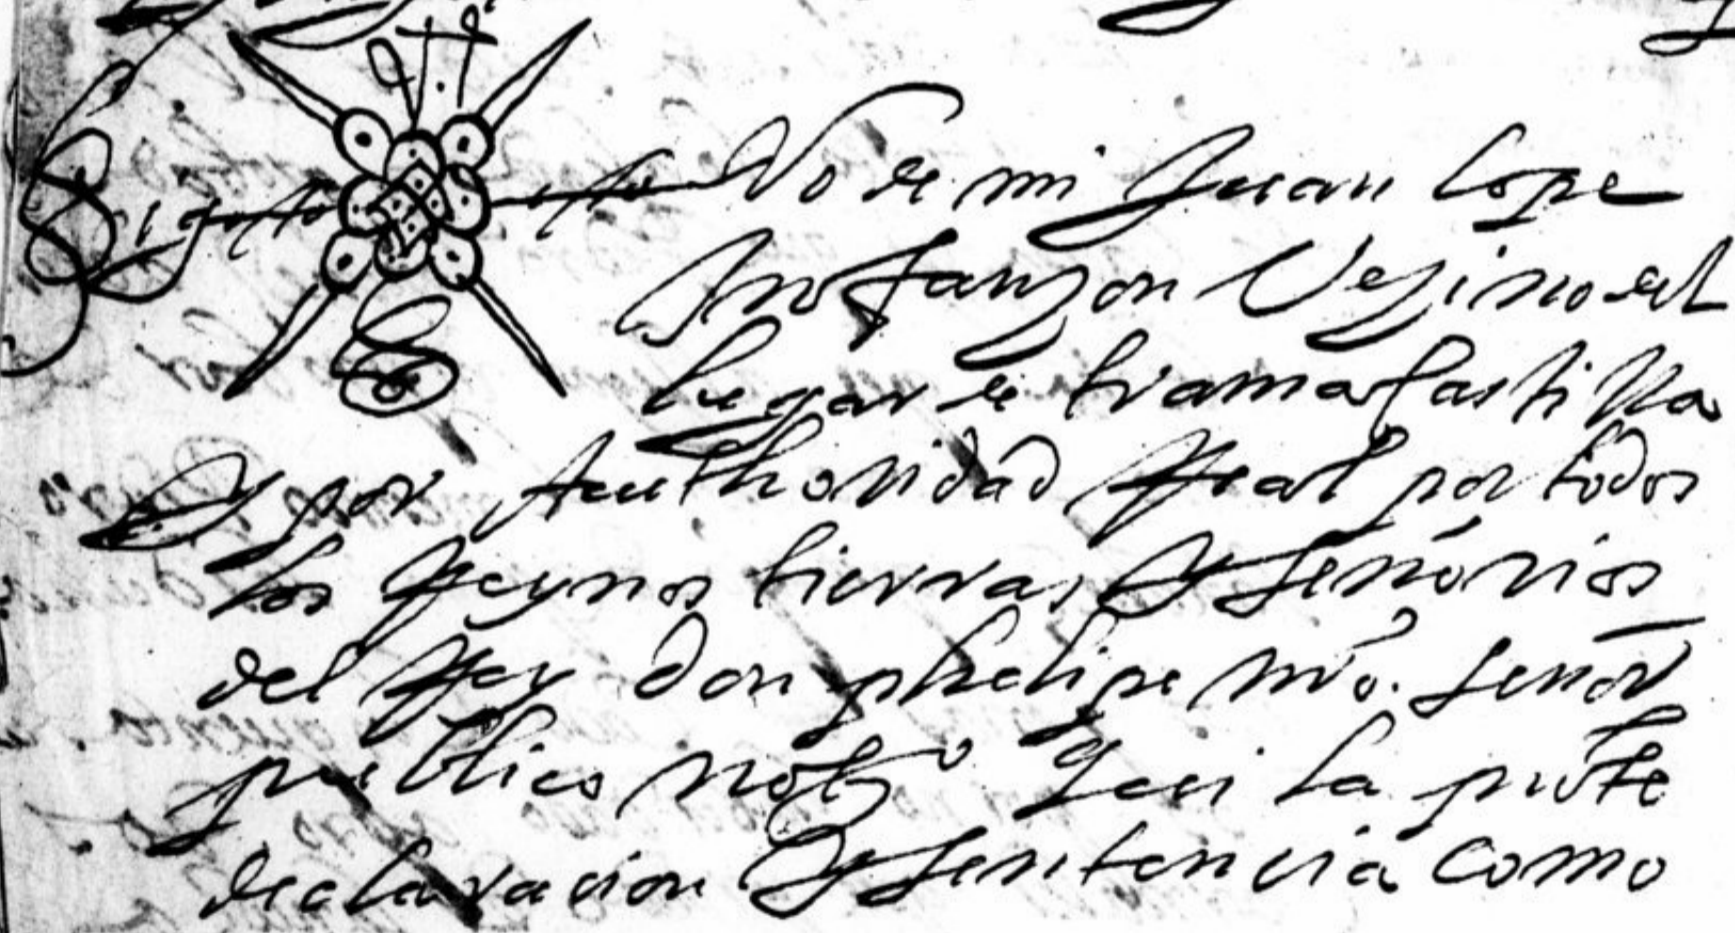 Signo de mi Juan Lope
Infanzon Vezino del
lugar de tramacastilla
Y por Authoridad Real por todos
los Reynos tierras Y señorios
del Rey don phelipe nro. señor
publico notº q assi la pnte
declaracion Y sentencia como